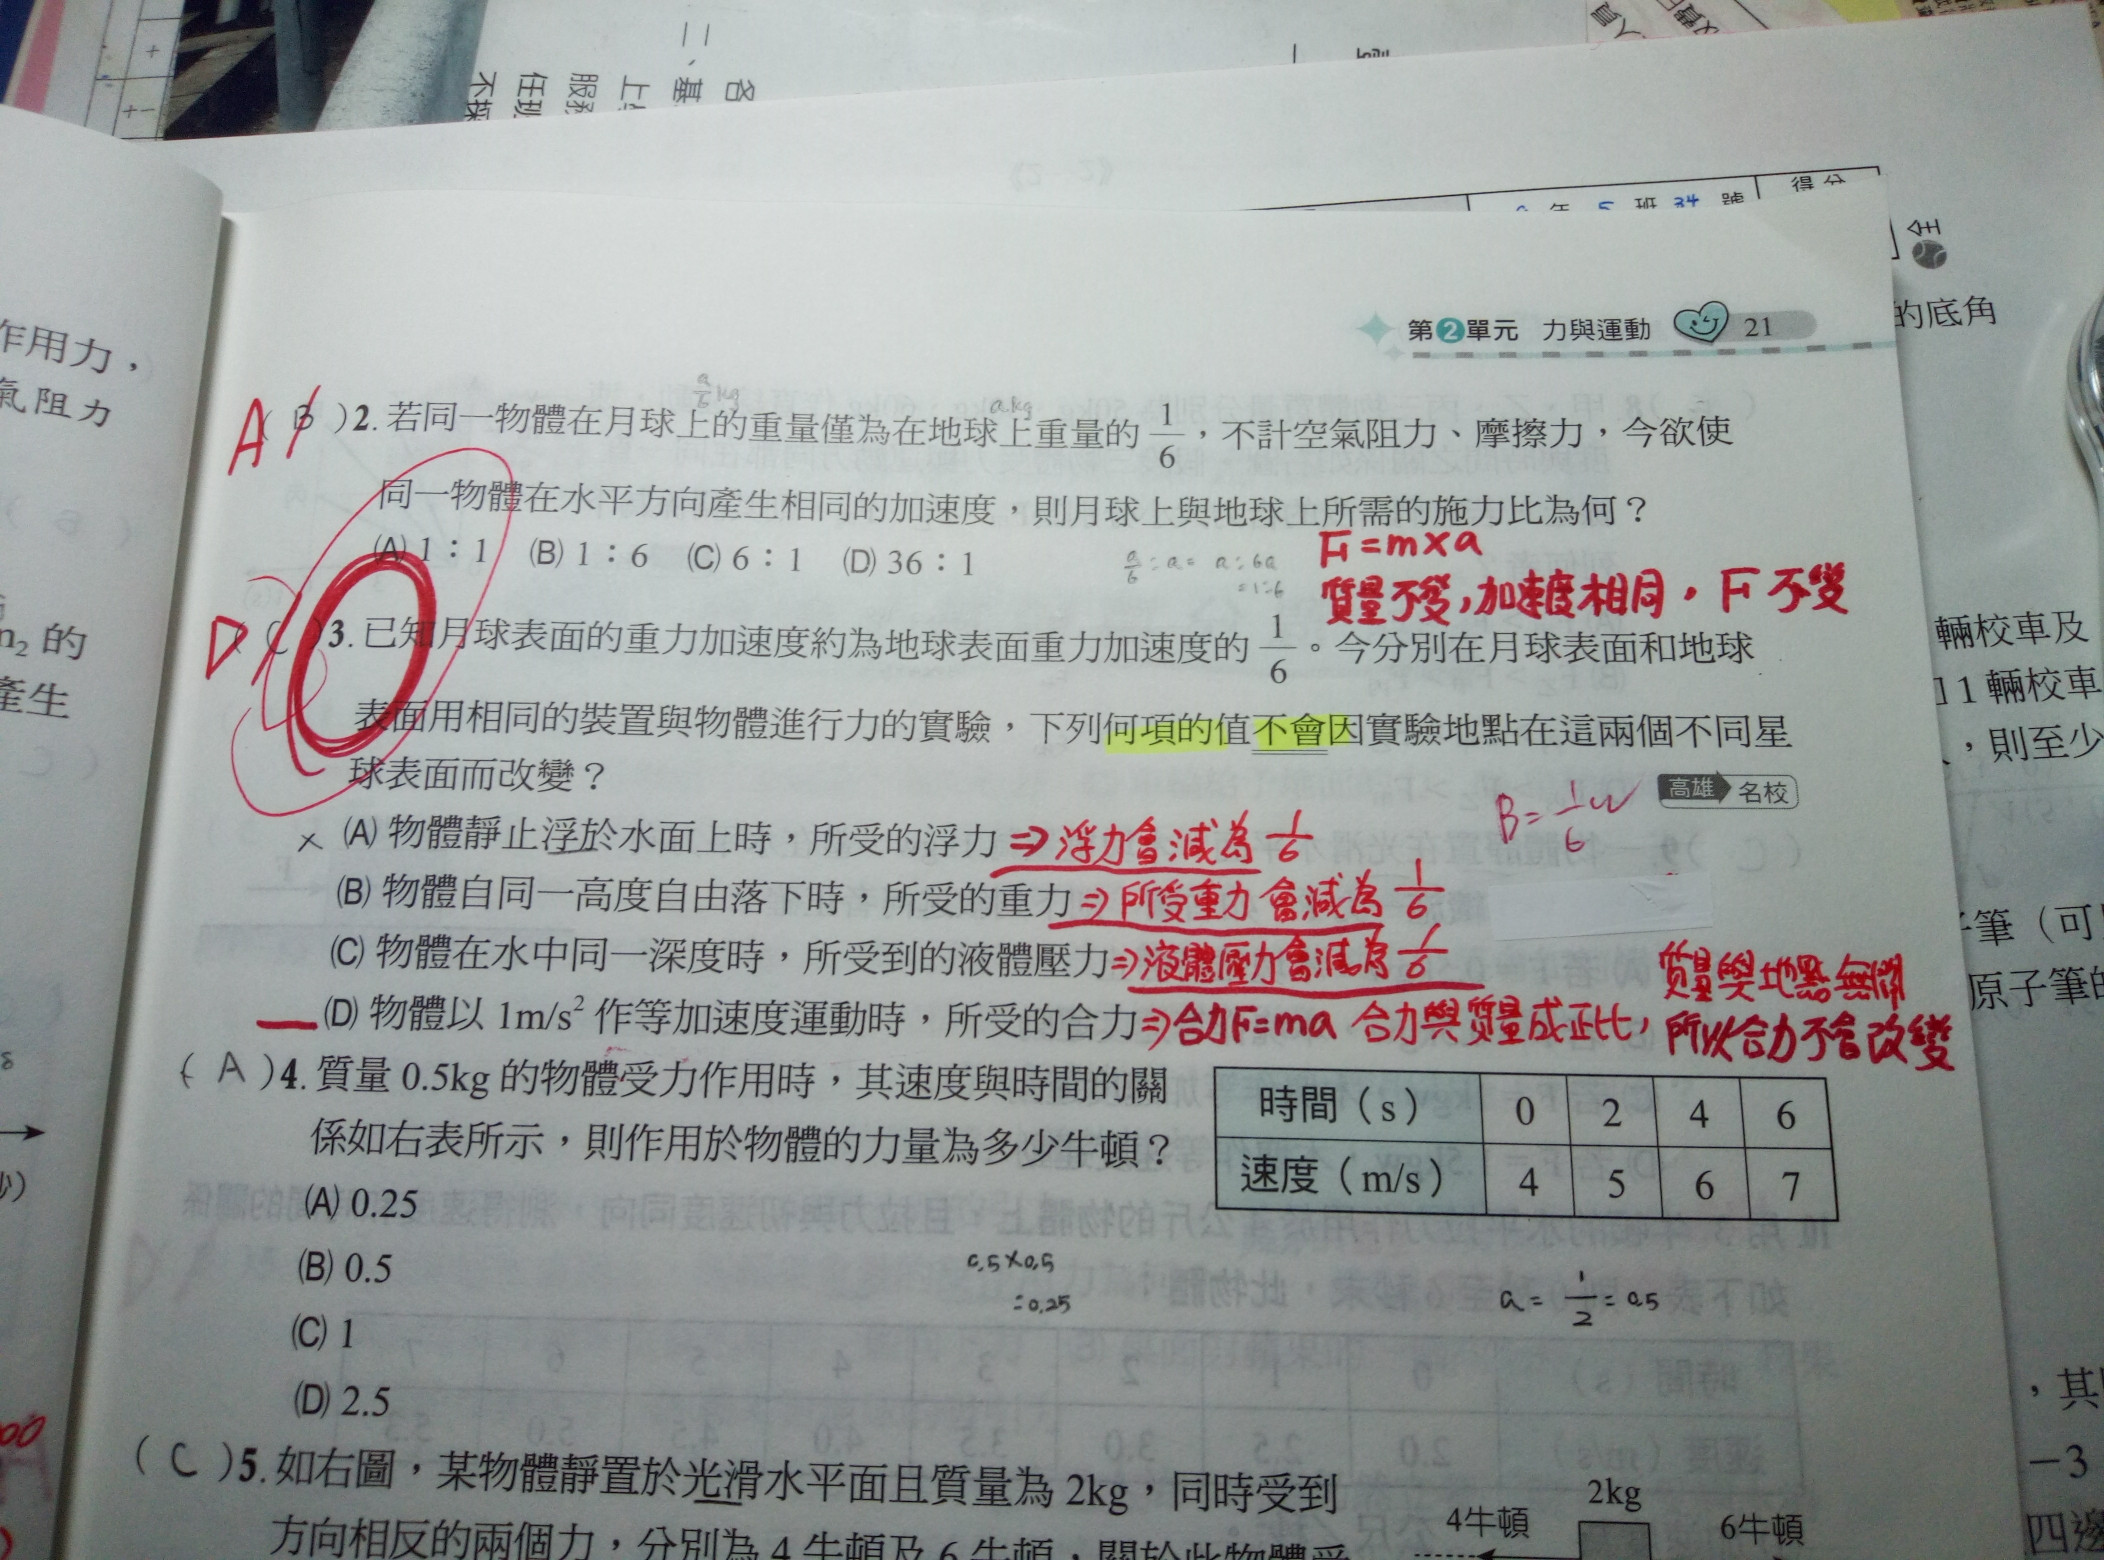 二、基
各
上
服務
任現
不
年 5 班 34 號
得分
全
作用力，
氣阻力
的
產生
第2單元 力與運動 21
的底角
輛校車及
1輛校車
，則至少
筆（可
原子筆的
，其
－3
四邊
a/6 kg
a kg
A
( B )2. 若同一物體在月球上的重量僅為在地球上重量的 1/6，不計空氣阻力、摩擦力，今欲使
同一物體在水平方向產生相同的加速度，則月球上與地球上所需的施力比為何？
(A) 1：1 (B) 1：6 (C) 6：1 (D) 36：1
a/6 : a = a : 6a
= 1:6
F=m×a
質量不變，加速度相同，F不變
D
( C )3. 已知月球表面的重力加速度約為地球表面重力加速度的 1/6。今分別在月球表面和地球
表面用相同的裝置與物體進行力的實驗，下列何項的值不會因實驗地點在這兩個不同星
球表面而改變？
高雄 名校
B=1/6 W
× (A) 物體靜止浮於水面上時，所受的浮力 ⇒浮力會減為 1/6
(B) 物體自同一高度自由落下時，所受的重力 ⇒所受重力會減為 1/6
(C) 物體在水中同一深度時，所受到的液體壓力 ⇒液體壓力會減為 1/6
(D) 物體以 1m/s² 作等加速度運動時，所受的合力 ⇒合力F=ma 合力與質量成正比，
質量與地點無關
所以合力不會改變
( A )4. 質量 0.5kg 的物體受力作用時，其速度與時間的關
係如右表所示，則作用於物體的力量為多少牛頓？
時間（s） 0 2 4 6
速度（m/s） 4 5 6 7
(A) 0.25
(B) 0.5
(C) 1
(D) 2.5
0.5×0.5
=0.25
a= 1/2 =0.5
( C )5. 如右圖，某物體靜置於光滑水平面且質量為 2kg，同時受到
方向相反的兩個力，分別為 4 牛頓及 6 牛頓，關於此物體受
4牛頓
2kg
6牛頓